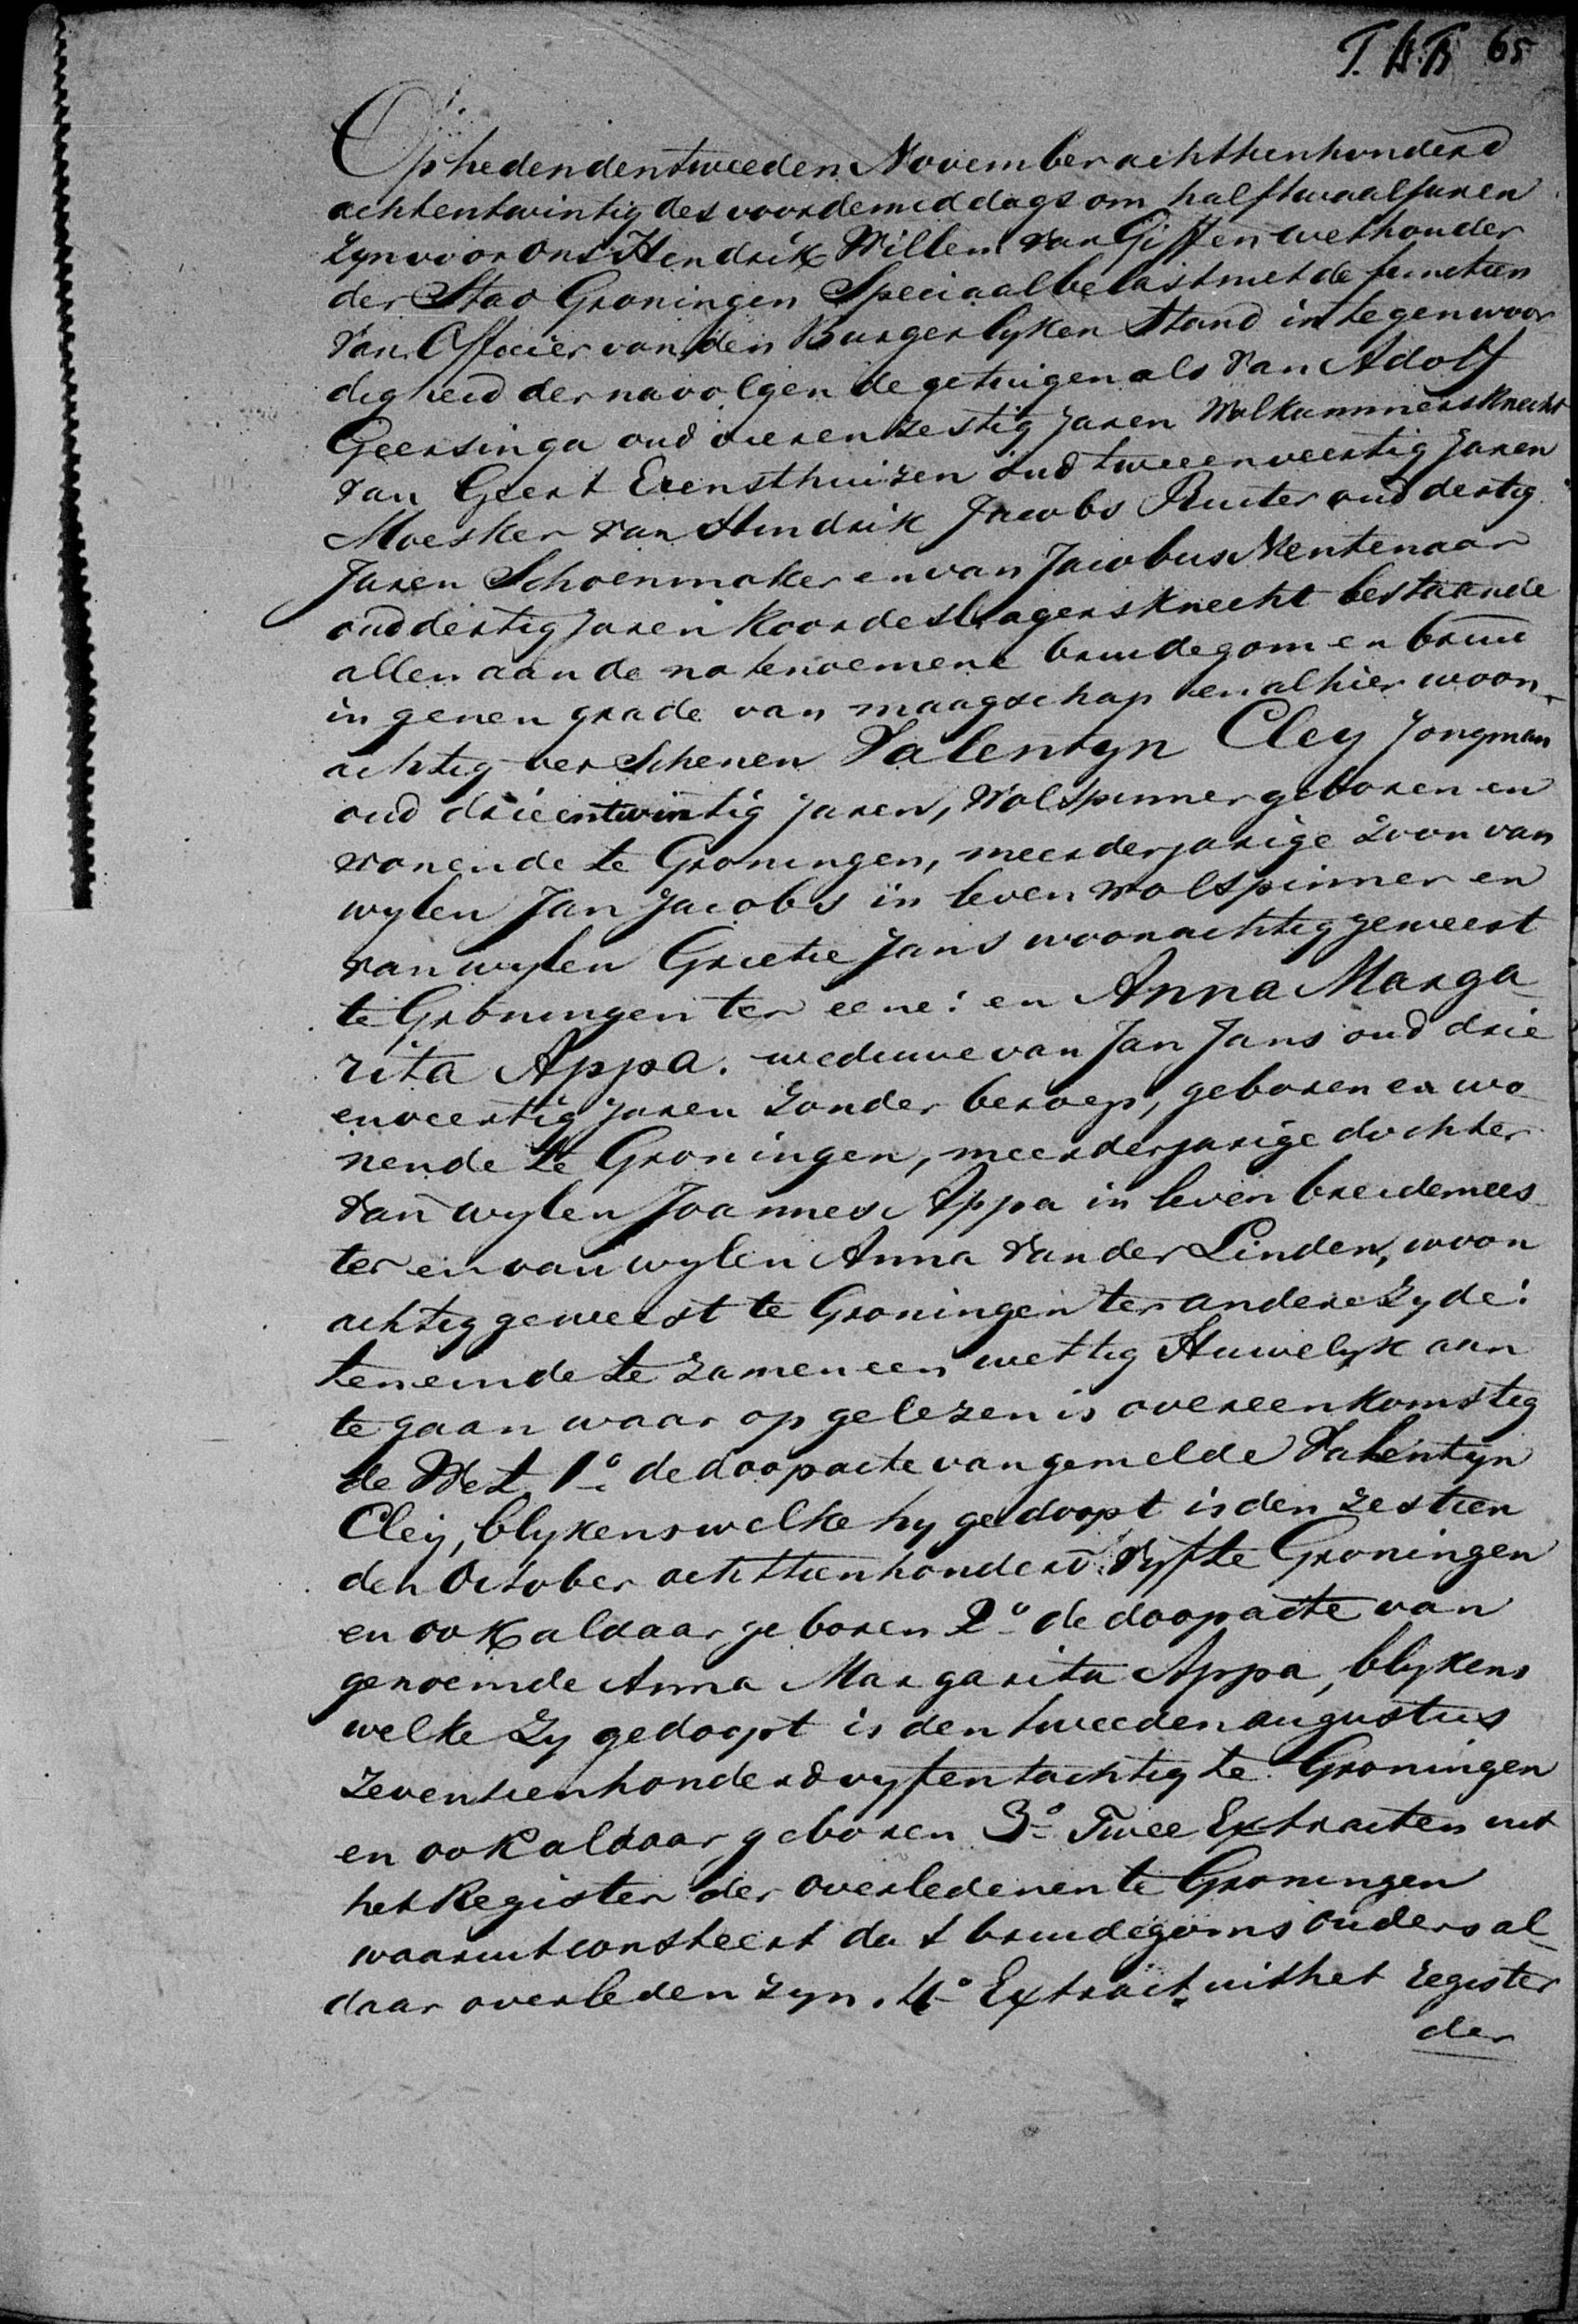 65
Op heden den tweeden November achttienhonderd
achtentwintig des voordemiddags om half twaalf uren
zyn voor ons Hendrik Willem van Giffen wethouder
der Stad Groningen Speciaal belast met de functien
van Officier van den Burgerlyken Stand in tegenwoor
digheid der navolgende getuigen als van Adolf
Geersinga oud vierenzestig jaren Wolkammersknecht
van Geert Erensthuizen oud tweeenveertig jaren
Moesker van Hindrik Jacobs Ruiter oud dertig
jaren Schoenmaker en van Jacobus Rentenaar
oud dertig jaren koordeslagersknecht bestaande
allen aan de natenoemene bruidegom en bruid
in genen grade van maagschap en alhier woon-
achtig verschenen Valentyn Cley Jongman
oud drieentwintig jaren, Wolspinner geboren en
wonende te Groningen, meerderjarige zoon van
wylen Jan Jacobs in leven wolspinner en
van wylen Grietie Jans woonachtig geweest
te Groningen ter eene: en Anna Marga
rita Appa. weduwe van Jan Jans oud drie
enveertig jaren zonder beroep, geboren en wo
nende te Groningen, meerderjarige dochter
van wylen Joannes Appa in leven breidemees
ter en van wylen Anna van der Linden, woon
achtig geweest te Groningen ter andere zyde:
ten einde te zamen een wettig Huwelyk aan
te gaan waar op gelezen is overeenkomstig
de Wet 1o de doopacte van gemelde Valentyn
Cleij, blykens welke hy gedoopt is den zestien
den October achttienhonderd vyf te Groningen
en ook aldaar geboren 2o de doopacte van
genoemde Anna Margarita Appa, blykens
welke zy gedoopt is den tweeden augustus
zeventienhonderd vyfentachtig te Groningen
en ook aldaar geboren 3o Twee Extracten uit
het Register der overledenen te Groningen
waaruit consteert dat bruidegoms ouders al
daar overleden zyn. 4o Extract uit het register
der